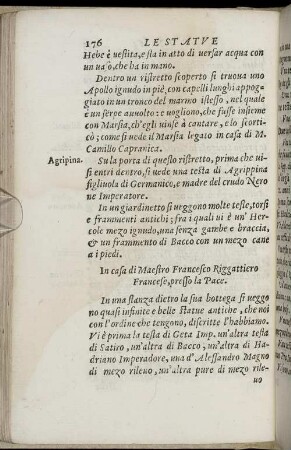 176 LE STATVE
Hebe è uestita, e sta in atto di uersar acqua con
un uaso, che ha in mano.
Dentro un ristretto scoperto si truoua uno
Apollo ignudo in piè, con capelli lunghi appog
giato in un tronco del marmo istesso, nel quale
è un serpe auuolto: e uogliono, che fusse insieme
con Marsia, ch'egli uinse à cantare, e lo scorti-
cò; come si uede il Marsia legato in casa di M.
Camillo Capranica.
Agripina. Su la porta di questo ristretto, prima che ui
si entri dentro, si uede una testa di Agrippina
figliuola di Germanico, e madre del crudo Nero
ne Imperatore.
In un giardinetto si ueggono molte teste, torsi
e frammenti antichi; fra i quali ui è un' Her-
cole mezo ignudo, una senza gambe e braccia,
& un frammento di Bacco con un mezo cane
a i piedi.
In casa di Maestro Francesco Rigattiero
Francese, presso la Pace.
In una stanza dietro la sua bottega si ueggo
no quasi infinite e belle statue antiche, che noi
con l'ordine che tengono, discritte l'habbiamo.
Vi è prima la testa di Geta Imp. un'altra testa
di Satiro, un'altra di Bacco, un'altra di Ha-
driano Imperadore, una d'Alessandro Magno
di mezo rileuo, un'altra pure di mezo rile-
uo